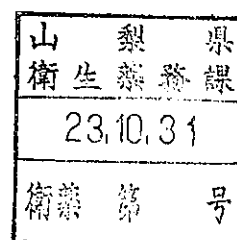 山梨県
衛生薬務課
23.10.31
衛薬 第 号